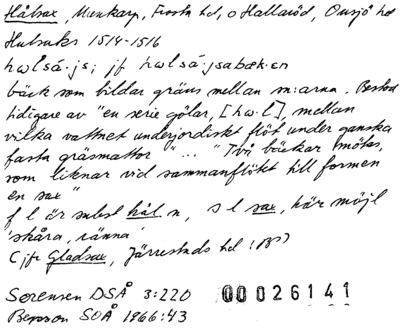 Hålsax, Munkarp, Frosta hd, o Hallaröd, Onsjö hd
Hulsaks 1514-1516
hωlsá·js; jf hωlsá·jsabæk·en
bäck som bildar gräns mellan m:arna. Bestod
tidigare av "en serie gölar, [hω·l], mellan
vilka vattnet underjordiskt flöt under ganska
fasta gräsmattor "..." Två bäckar mötas,
som liknar vid sammanflödet till formen
en sax"
f l är subst hål n, s l sax, här möjl
'skåra, ränna'
Cjfr Gladsax, Järrestads hd
Sørensen DSÅ 3:220 00026141
SOÅ 1966:43